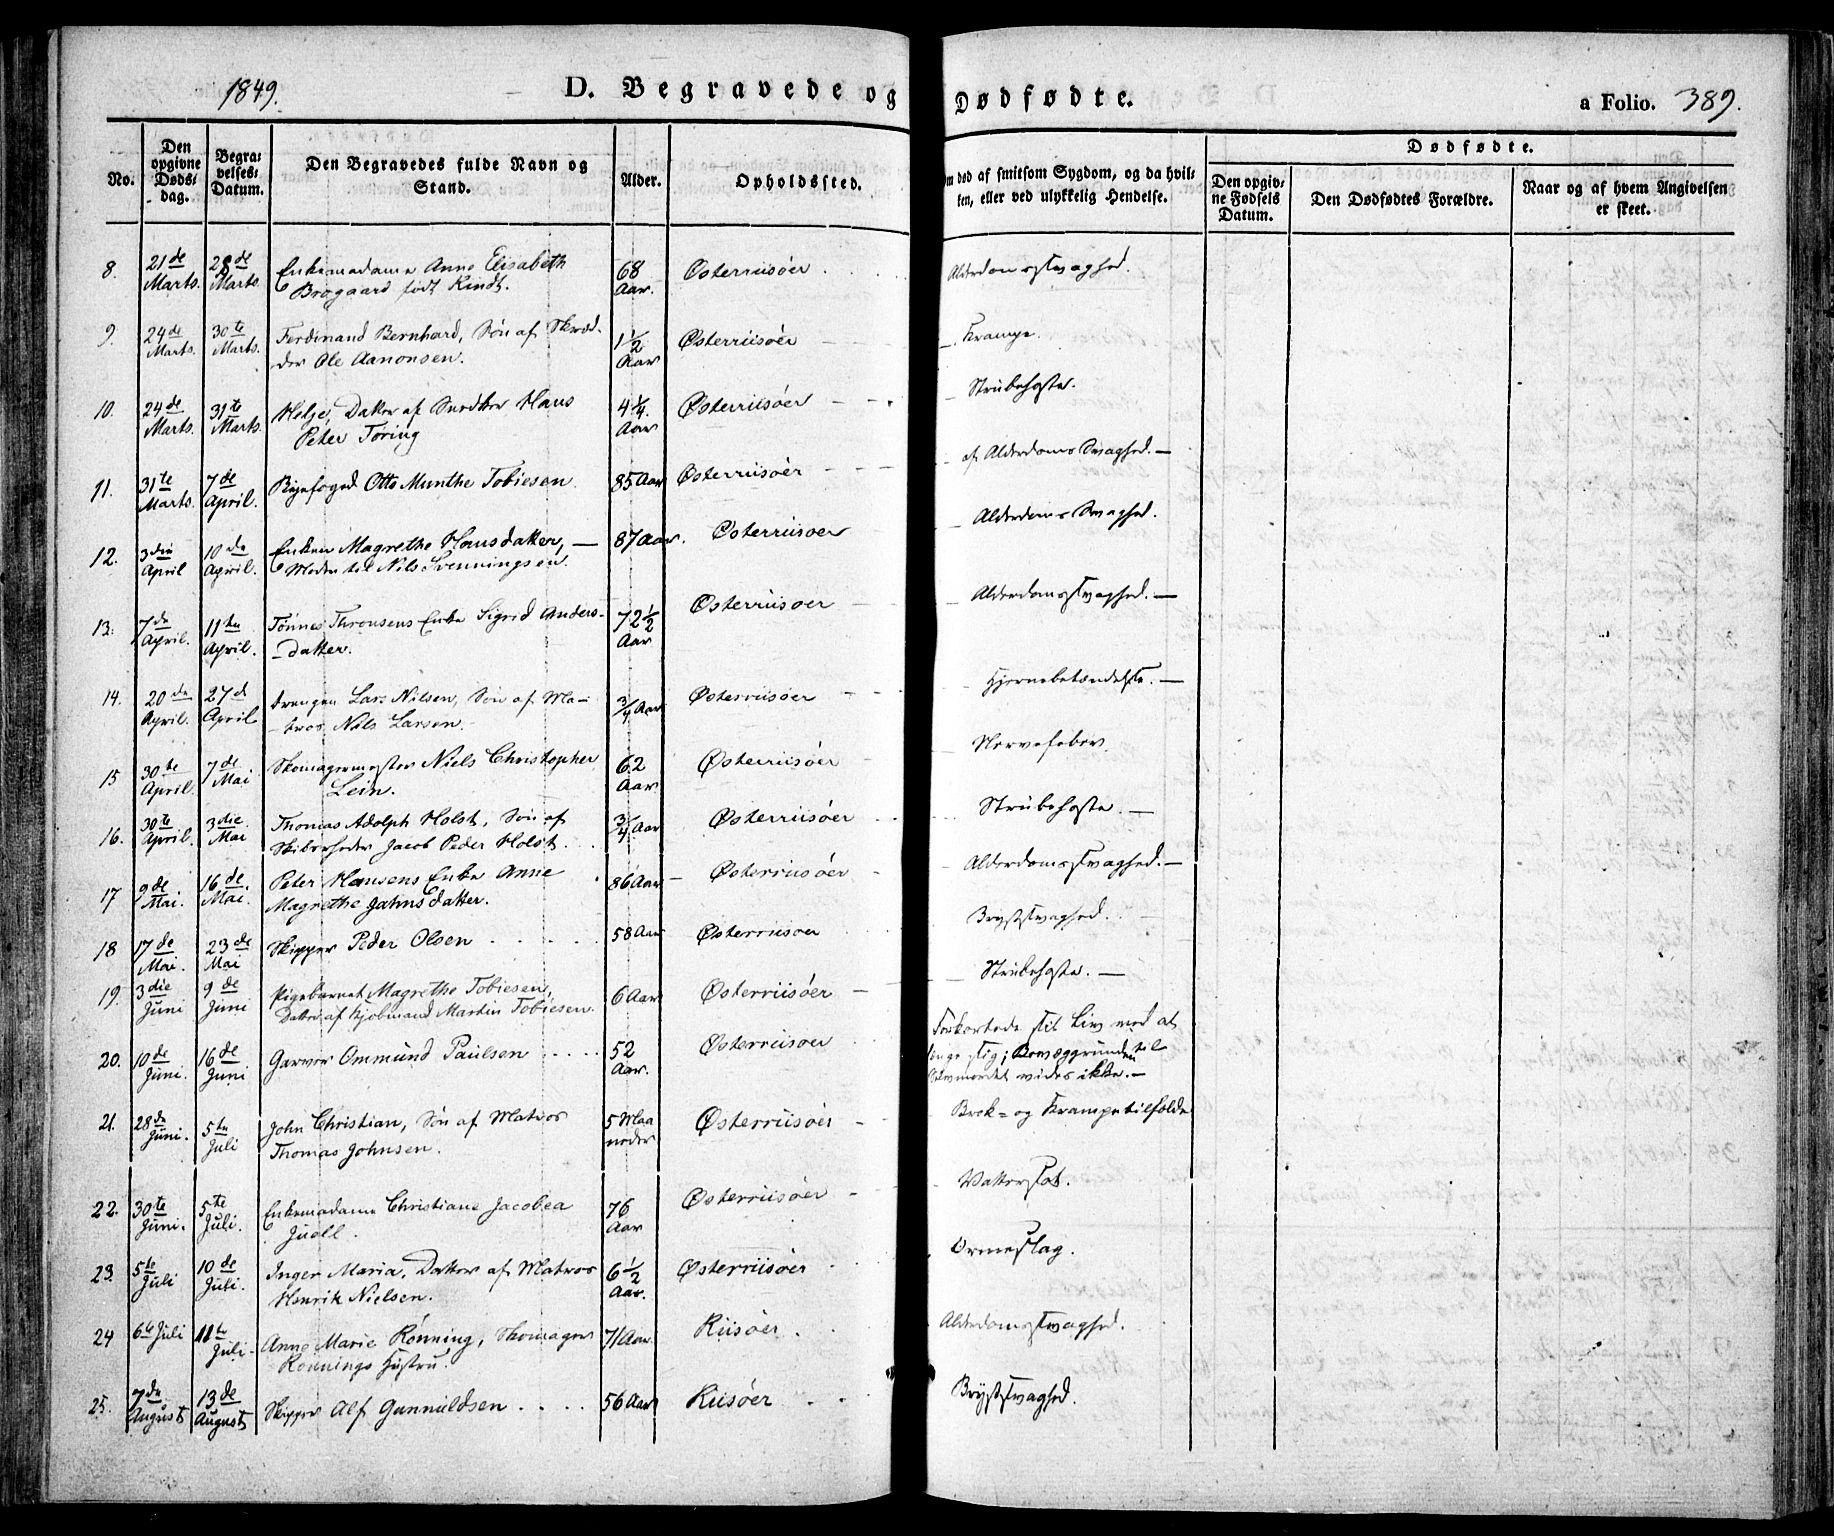 1849.
D. Begravede og Dødfødte.
a Folio. 389.
No.
Den opgivne Døds-dag.
Begra-velses-Datum.
Den Begravedes fulde Navn og Stand.
Alder.
Opholdssted.
Om død af smitsom Sygdom, og da hvil-ken, eller ved ulykkelig Hendelse.
Dødfødte.
Den opgiv-ne Fødsels Datum.
Den Dødfødtes Forældre.
Naar og af hvem Angivelsen er skeet.
8. 21de Marts. 28de Marts. Enkemadame Anne Elisabeth Brogaard født Kindt. 68 Aar. Østerriisöer Alderdomssvaghed.
9. 24de Marts. 30te Marts. Ferdinand Bernhard, Sön af Skræd-der Ole Aanonsen. 1½ Aar Østerriisöer Krampe.
10. 24de Marts. 31te Marts. Helje, Datter af Snedker Hans Peter Töring 4¼ Aar Østerriisöer Strubehoste.
11. 31te Marts. 7de April. Byefoged Otto Munthe Tobiesen. 85 Aar Østerriisöer af Alderdoms Svaghed. —
12. 3die April 10de April. Enken Magrethe Hansdatter, — Moder til Nils Svenningsen. 87 Aar. Østerriisoer Alderdoms Svaghed.
13. 7de April. 11te April. Tönnes Thronsens Enke Sigrid Anders-Datter. 72½ Aar Østerriisoer Alderdomssvaghed. —
14. 20de April. 27de April Drengen Lars Nilsen, Sön af Ma-tros Nils Larsen. ¾ Aar Østerriisöer Hjernebetændelse. —
15 30te April. 7de Mai Skomagermester Niels Christopher Lein. 62 Aar Østerriisöer Nervefeber.
16. 30te April. 3die Mai Thomas Adolph Holst, Sön af Skibsrheder Jacob Peder Holst. ¾ Aar Østerriisöer Strubehoste. —
17 9de Mai. 16de Mai. Peter Hansens Enke Anne Magrethe Jahnsdatter. 86 Aar Østerriisöer Alderdomssvaghed. —
18 17de Mai. 23de Mai Skipper Peder Olsen 58 Aar Østerriisoer Brystsvaghed.
19. 3die Juni 9de Juni Pigebarnet Magrethe Tobiesen, Datter af Kjöbmand Martin Tobiesen. 6 Aar Østerriisöer Strubehoste. —
20. 10de Juni. 16de Juni Garver Ommund Paulsen 52 Aar. Østerriisöer Forkortede sit Liv med at hænge sig; Bevæggrunden til Selvmordet vides ikke. —
21. 28de Juni. 5te Juli John Christian, Sön af Matros Thomas Johnsen. 5 Maaneder Østerriisöer Brok- og Krampetilfælde
22. 30te Juni. 5te Juli. Enkemadame Christiane Jacobea Juell. 76 Aar Østerriisöer Vattersot.
23. 5te Juli 10de Juli. Inger Maria, Datter af Matros Henrik Nielsen. 6½ Aar. Østerriisöer Ormeslag.
24 6te Juli 11te Juli. Anne Marie Rönning, Skomager Rönnings Hustru. 71 Aar Riisöer Alderdomssvaghed.
25. 7de August 13de August Skipper Alf Gunnuldsen 56 Aar Riisöer Brystsvaghed.